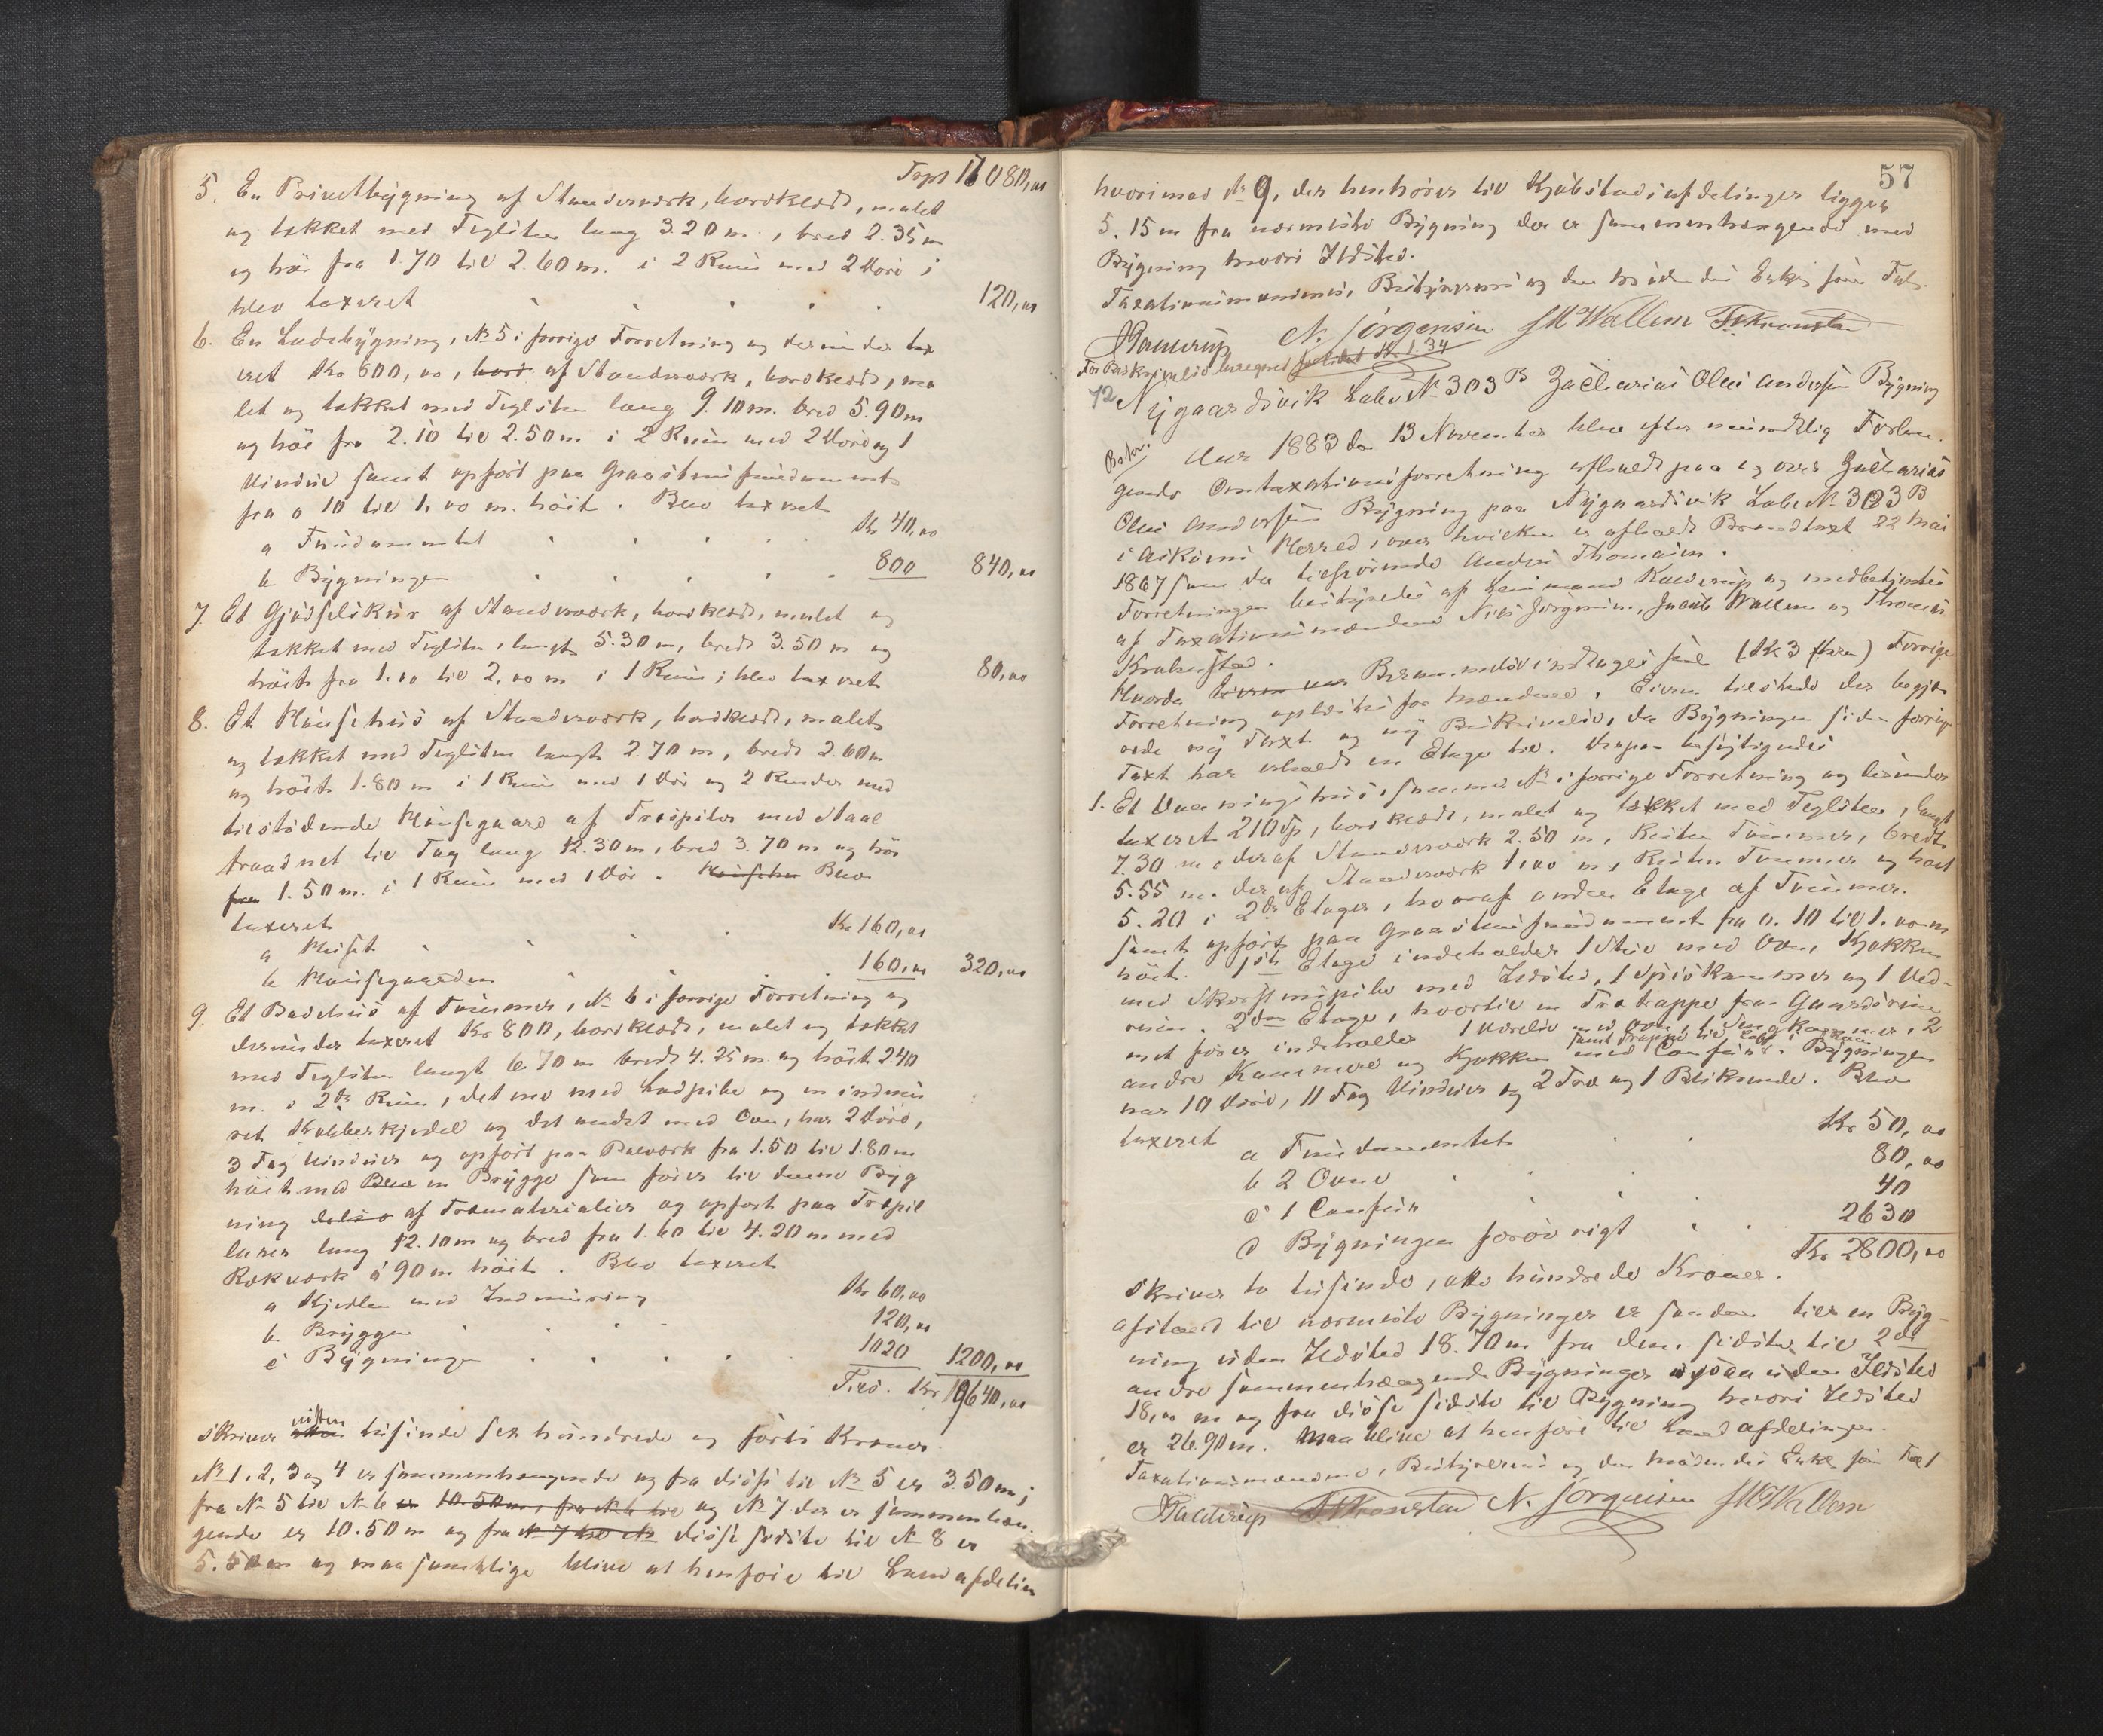 Trpt 17080,00
5. En Privetbygning af Standerværk, bordklædt, malet
og tækket med Teglsten lang 3.20 m., bred 2.35 m
og høi fra 1.70 til 2.60 m. i 2 Rum med 2 Døre;
blev taxeret 120,00
6. En Ladebygning, No 5 i forrige Forretning og derunder tax
eret Kr 600,00, bord af Standerværk, bordklædt, ma
let og tækket med Teglsten lang 9.10 m. bred 5.90 m
og høi fra 2.10 til 2.50 m. i 2 Rum med 2 Døre og 1
Vindue samt opført paa Graastensfundament
fra 0 10 til 1,00 m. høit. Blev taxeret
a Fundamentet Kr 40,00
b Bygningen 800 840,00
7. Et Gjødselskur af Standerværk, bordklædt, malet og
tækket med Teglsten, langt 5.30 m, bredt 3.50 m og
høit fra 1.00 til 2,00 m i 1 Rum; blev taxeret 80,00
8. Et Hønsehus af Standerværk, bordklædt, malet
og tækket med Teglsten langt 2.70 m, bredt 2.60 m
og høit 1.80 m i 1 Rum med 1 Dør og 2 Ruder med
tilstødende Hønsegaard af Træspiler med Staal
traadnet til Tag lang 12.30 m, bred 3.70 m og høi
fra 1.50 m. i 1 Rum med 1 Dør. Blev
taxeret
a Huset Kr 160,00
b Hønsegaarden 160,00 320,00
9. Et Badehus af Tømmer, No 6 i forrige Forretning og
derunder taxeret Kr 800, bordklædt, malet og tækket
med Teglsten langt 6.70 m bredt 4.25 m og høit 2.40
m. i 2de Rum, det ene med Ludpibe og en indmu
ret Kobberkjedel og det andet med Ovn, har 2 Døre,
3 Fag Vinduer og opført paa Pæleværk fra 1.50 til 1.80 m
høit med Blev en Brygge som fører til denne Byg
ning af Træmaterialier og opført paa Træpil
larer lang 12.10 m og bred fra 1.60 til 4.20 m med
Rækværk 0 90 m høit. Blev taxeret
a Kjedlen med Indmuring Kr 60,00
b. Bryggen 120,00
c Bygningen 1020 1200,00
Tils. Kr 19640,00
nitten
skriver tusinde sex hundrede og førti Kroner.
No 1, 2, 3 og 4 er sammenhængende og fra disse til No 5 er 3.50 m;
fra No 5 til No 6 er 10.50 m, fra No 6 til og No 7 der er sammenhæn-
gende er 10.50 m og fra No 7 til No disse sidste til No 8 er
5.50 m og maa samtlige blive at henføre til Landafdelin
57
hvorimod No 9, der henhører til Kjøbstadsafdelingen ligger
5.15 m fra nærmeste Bygning der er sammenhængende med
Bygning hvori Ildsted.
Taxationsmændenes, Bestyrerens og den Eskes som Tax.
N. Jørgensen J M Wallem T. Krohnstad
For Beskrivelse beregnet Kr. 1.34
72 Nygaardsvik Løbe No 303 B Zacharias Olai Andersen Bygning
Aar 1883 den 13 November blev efter mundtlig Forlan-
gende Omtaxationsforretning afholdt paa og over Zacharias
Olai Andersens Bygning paa Nygaardsvik Løbe No 303 B
i Askøens Herred, over hvilken er afholdt Brandtaxt 22 Mai
1867 som da tilhørende Anders Thomassen.
Forretningen bestyredes af Lensmand og medbetjentes
af Taxationsmændene Nils Jørgensen, Jacob Wallem og Thomas
Krohnstad.
Hvorda Berammelse indtages (Kr 3 ) Forrige
Forretning oplæstes for Mændene. Eieren tilstede der begjæ
rede ny Taxt og ny Beskrivelse, da Bygningen siden forrige
Taxt har erholdt en Etage til. Derpaa besigtigedes
1. Et Vaaningshus, samme No i forrige Forretning og derunder
taxeret 210 Sp, bordklædt, malet og tækket med Teglsten, langt
7.30 m, deraf Standerværk 2.50 m, Resten Tømmer, bredt
5.55 m. deraf Standerværk 1,00 m, Resten Tømmer og høit
5.20 i 2de Etager, hvoraf anden Etage af Tømmer.
samt opført paa Graastensfundament fra 0.10 til 1.00 m
høit. 1ste Etage indeholder 1 Stue med Ovn, Kjøkken
med Skorstenspibe med Ildsted, 1 Spiskammer og 1 Ved-
rum. 2den Etage, hvortil en Trætrappe fra Gaardsrum
met fører indeholder 1 Værelse med Ovn, 1 Sengkammer, 2
samt Trappe til Loft
andre Kammere og Kjøkken med Comfur. Bygningen
har 10 Døre, 11 Fag Vinduer og 2 Træ og 1 Blikrende. Blev
taxeret
a Fundamentet Kr 50,00
b 2 Ovne 80,00
c 1 Comfur 40
d Bygningen forøvrigt 2630
Kr 2800,00
skriver to tusinde, otte hundrede Kroner.
Afstand til nærmeste Bygninger er saadan til en Byg-
ning uden Ildsted 18.70 m fra den sidste til 2de
andre sammenhængende Bygninger ogsaa uden Ildsted
18,00 m og fra disse sidste til Bygning hvori Ildsted
er 26.90 m. Maa blive at henføre til Landafdelingen.
Taxationsmændene, Bestyrerens og den Eske som Tax
T Krohnstad N. Jørgensen J M Wallem